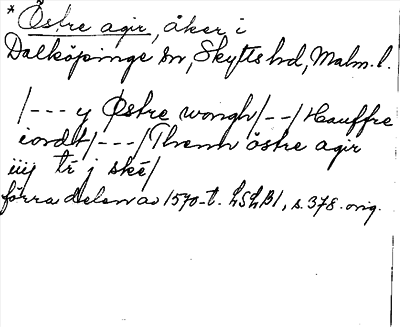 * Östre agir, åker i
Dalköpinge sn, Skytts hd, Malm. l.
/--- y Østre wongh/--/Hauffre
iordt/---/Thenn östre agir
iiij tr j ské/
förra delen av 1570-t. LSLB1, s. 378. orig.